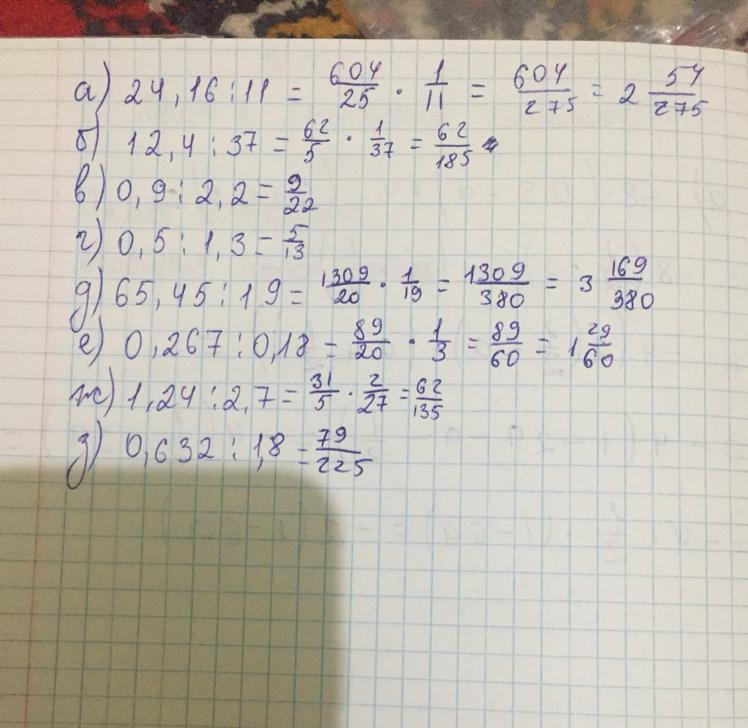 а) 24,16 : 11 = 604/25 · 1/11 = 604/275 = 2 54/275
б) 12,4 : 37 = 62/5 · 1/37 = 62/185
в) 0,9 : 2,2 = 9/22
г) 0,5 : 1,3 = 5/13
д) 65,45 : 19 = 1309/20 · 1/19 = 1309/380 = 3 169/380
е) 0,267 : 0,18 = 89/20 · 1/3 = 89/60 = 1 29/60
ж) 1,24 : 2,7 = 31/5 · 2/27 = 62/135
з) 0,632 : 1,8 = 79/225